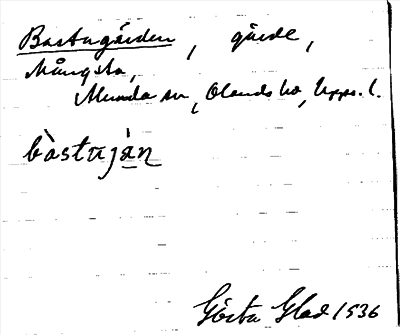 Bastugärden, gärde,
Mångsta,
Munda sn, Olands hd, Upps. l.
bàstujän
Gösta Glad 1936